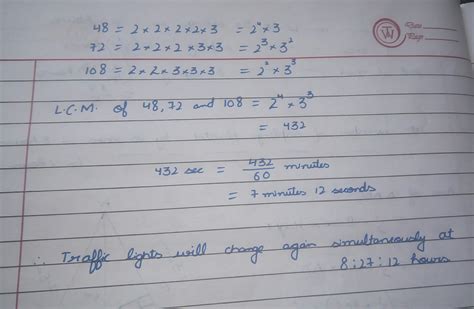 48 = 2 × 2 × 2 × 2 × 3 = 2⁴ × 3
Date
72 = 2 × 2 × 2 × 3 × 3 = 2³ × 3²
Page
108 = 2 × 2 × 3 × 3 × 3 = 2² × 3³
L.C.M. of 48, 72 and 108 = 2⁴ × 3³
= 432
432 sec = 432/60 minutes
= 7 minutes 12 seconds
∴ Traffic lights will change again simultaneously at
8:27:12 hours